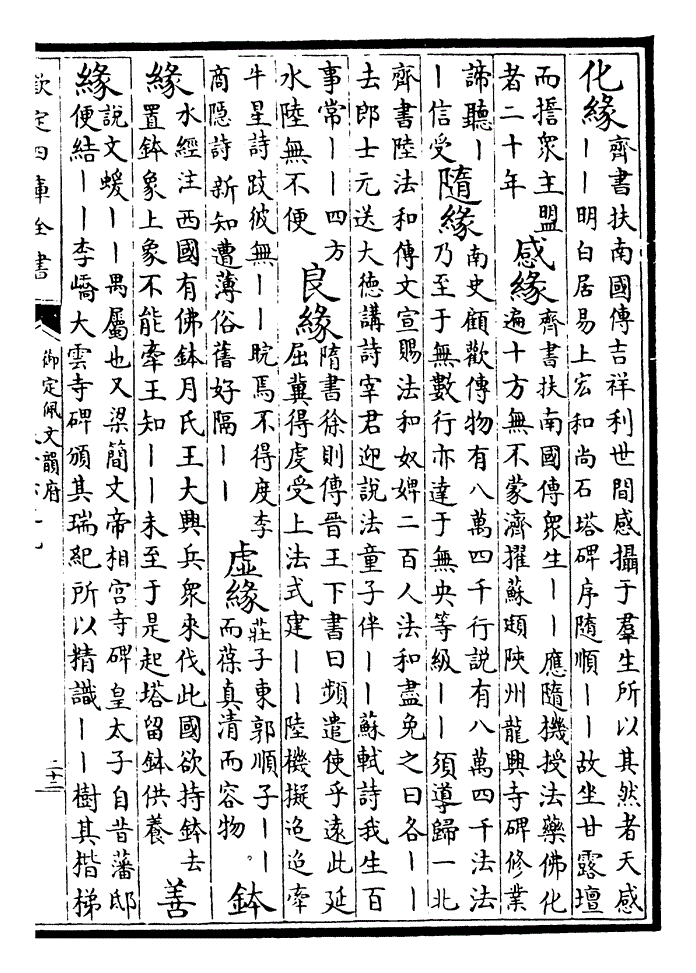 化緣齊書扶南國傳吉祥利世間感攝于羣生所以其然者天感
丨丨明白居易上宏和尚石塔碑序隨順丨丨故坐甘露壇
而揞衆主盟
者二十年
感緣齊書扶南國傳衆生丨丨應隨機授法藥佛化
遍十方無不蒙濟擢蘇頲陜州龍興寺碑修業
諦聽丨
丨信受
隨緣南史顧歡傳物有八萬四千行説有八萬四千法法
乃至于無數行亦達于無央等級丨丨須導歸一北
齊書陸法和傳文宣賜法和奴婢二百人法和盡免之曰各丨丨
去郎士元送大德講詩宰君迎説法童子伴丨丨蘇軾詩我生百
事常丨丨四方
水陸無不便
良緣隋書徐則傳晉王下書曰頻遣使乎遠此延
屈冀得虔受上法式建丨丨陸機擬迢迢牽
牛星詩跂彼無丨丨睆焉不得度李
商隱詩新知遭薄俗舊好隔丨丨
虛緣莊子東郭順子丨丨
而葆真清而容物
鉢
緣水經注西國有佛鉢月氏王大興兵衆來伐此國欲持鉢去
置鉢象上象不能牽王知丨丨未至于是起塔留鉢供養
善
緣説文蝯丨丨禺屬也又梁簡文帝相宫寺碑皇太子自昔藩邸
便結丨丨李嶠大雲寺碑頒其瑞紀所以精識丨丨樹其揩梯
欽定四庫全書
御定佩文韻府
二十二